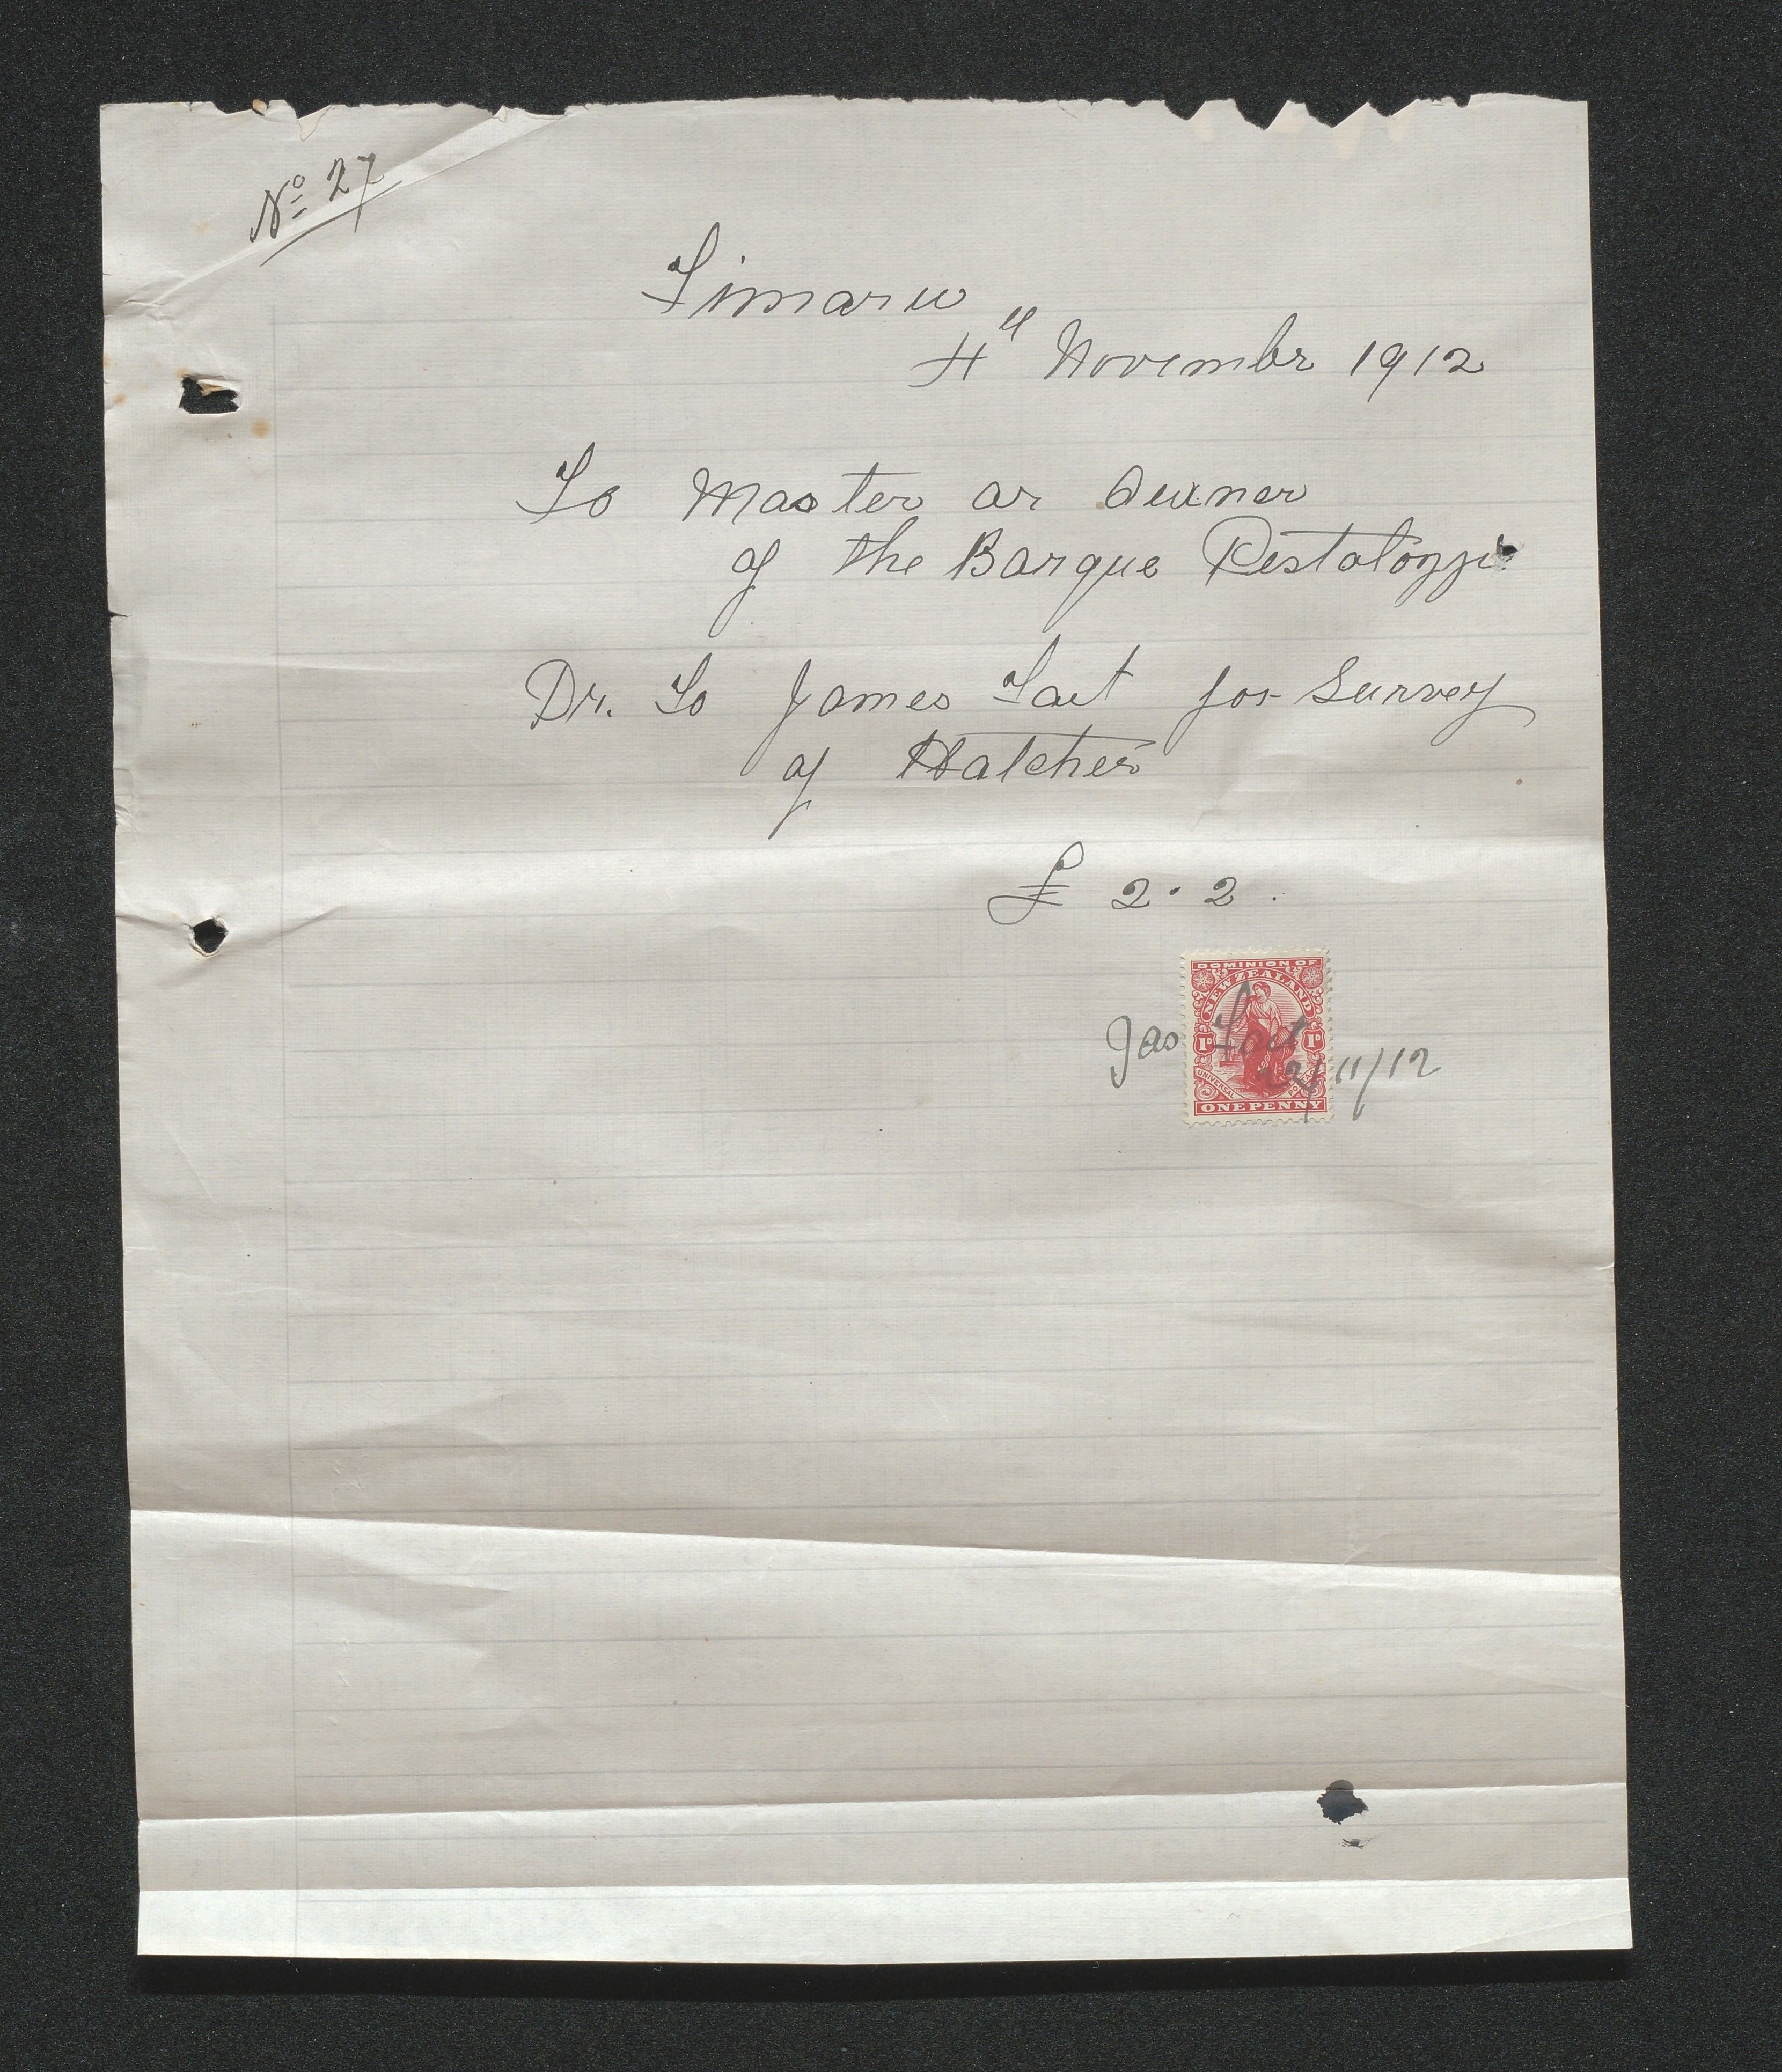 No 27
Timaru
4th Novembr 1912
To Master or Owner
of the Barque Pestalozzi
Dr. To James Tait for Survey
of Hatches
£ 2 . 2 .
DOMINION OF
NEW ZEALAND
Jas Tait
1D 1D
22/11/12
UNIVERSAL POSTAGE
ONE PENNY